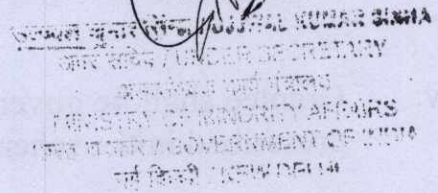 उज्ज्वल कुमार सिन्हा/UJJWAL KUMAR SINHA
अवर सचिव / UNDER SECRETARY
अल्पसंख्यक कार्य मंत्रालय
MINISTRY OF MINORITY AFFAIRS
भारत सरकार/GOVERNMENT OF INDIA
नई दिल्ली / NEW DELHI